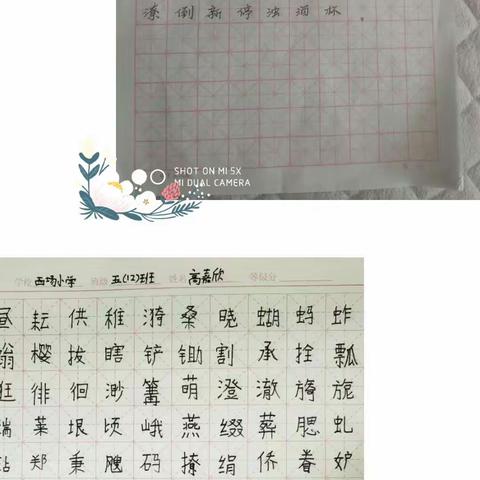 潦倒新停浊酒杯
SHOT ON MI 5X
MI DUAL CAMERA
学校 西场小学 班级 五(12)班 姓名 高嘉欣 等级分
昼耘供稚漪桑晓蝴蚂蚱
嗡樱拔瞎铲锄割承拴瓢
逛徘徊渺篝萌澄澈旖旎
瑞菜垠顷峨燕缀葬腮虬
郑秉 码撩绢侨眷妒